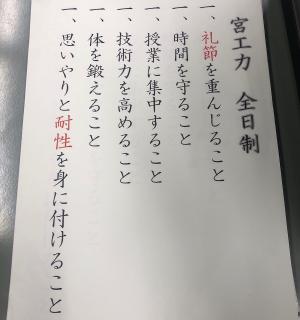 宮工力　全日制
一、礼節を重んじること
一、時間を守ること
一、授業に集中すること
一、技術力を高めること
一、体を鍛えること
一、思いやりと耐性を身に付けること